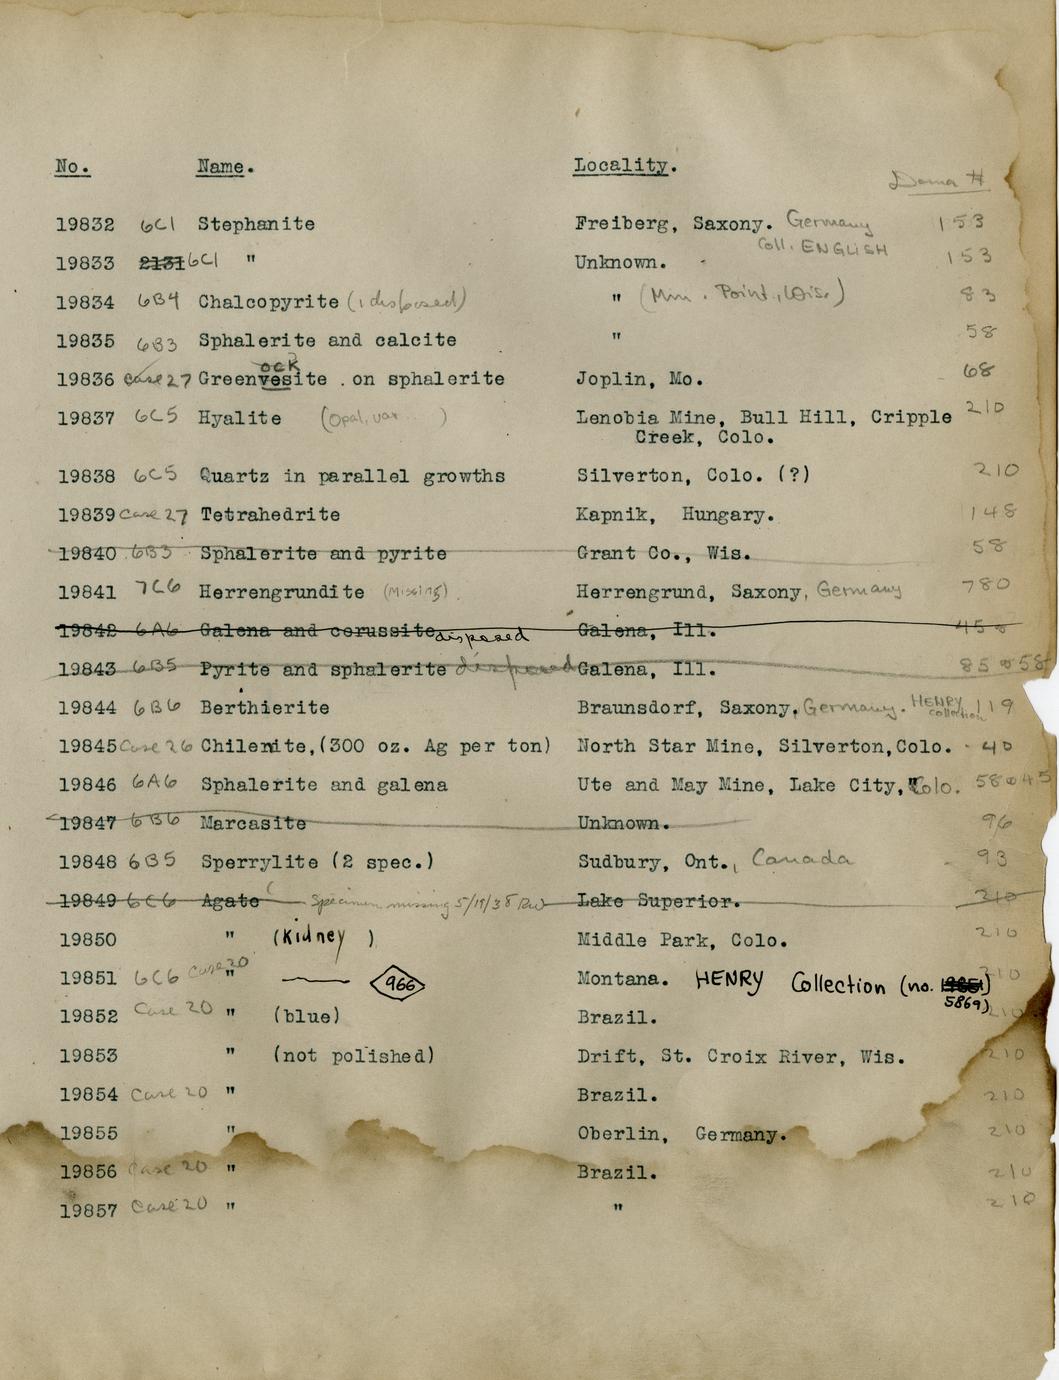 No. Name. Locality. Dana #
19832 6C1 Stephanite Freiberg, Saxony. Germany 153
Coll. ENGLISH
19833 2131 6C1 " Unknown. 153
19834 6B4 Chalcopyrite (1 disposed) " (Min. Point, Wis.) 83
19835 6B3 Sphalerite and calcite " 58
ock
19836 case 27 Greenvesite . on sphalerite Joplin, Mo. 68
19837 6C5 Hyalite (Opal, var. ) Lenobia Mine, Bull Hill, Cripple 210
Creek, Colo.
19838 6C5 Quartz in parallel growths Silverton, Colo. (?) 210
19839 case 27 Tetrahedrite Kapnik, Hungary. 148
19840 6B3 Sphalerite and pyrite Grant Co., Wis. 58
19841 7C6 Herrengrundite (Missing) Herrengrund, Saxony, Germany 780
19842 6A6 Galena and cerussite disposed Galena, Ill. 45
19843 6B5 Pyrite and sphalerite disposed Galena, Ill. 85 58
19844 6B6 Berthierite Braunsdorf, Saxony, Germany. HENRY collection 119
19845 Case 26 Chilenite, (300 oz. Ag per ton) North Star Mine, Silverton, Colo. 40
19846 6A6 Sphalerite and galena Ute and May Mine, Lake City, Colo. 58 45
19847 6B6 Marcasite Unknown. 96
19848 6B5 Sperrylite (2 spec.) Sudbury, Ont., Canada 93
19849 6C6 Agate Specimen missing 5/19/38 Lake Superior. 210
19850 " (Kidney ) Middle Park, Colo. 210
19851 6C6 case 20 " 966 Montana. HENRY Collection (no. 5869) 210
19852 Case 20 " (blue) Brazil. 210
19853 " (not polished) Drift, St. Croix River, Wis. 210
19854 Case 20 " Brazil. 210
19855 " Oberlin, Germany. 210
19856 Case 20 " Brazil. 210
19857 Case 20 " " 210